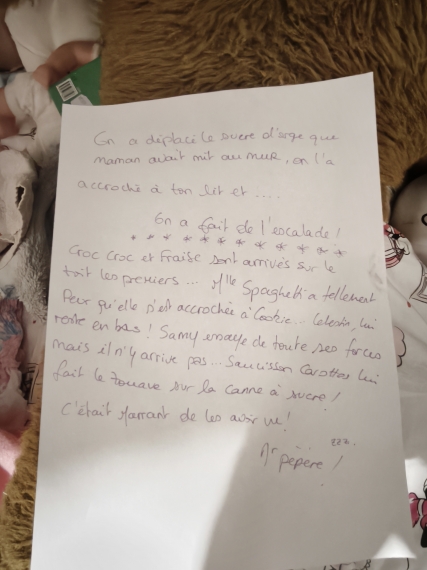 On a déplacé le sucre d'orge que
maman avait mit au mur, on l'a
accroché à ton lit et ....
On a fait de l'escalade !
* * * * * * * * * * * *
Croc Croc et Fraise sont arrivés sur le
toit les premiers ... Mlle Spaghetti a tellement
Peur qu'elle s'est accrochée à Cookie... Celestin, lui
reste en bas ! Samy essaye de toute ses forces
mais il n'y arrive pas ... Saucisson Carottes lui
fait le zouave sur la canne à sucre !
C'était marrant de les voir !
zzz.
Mr pépère !